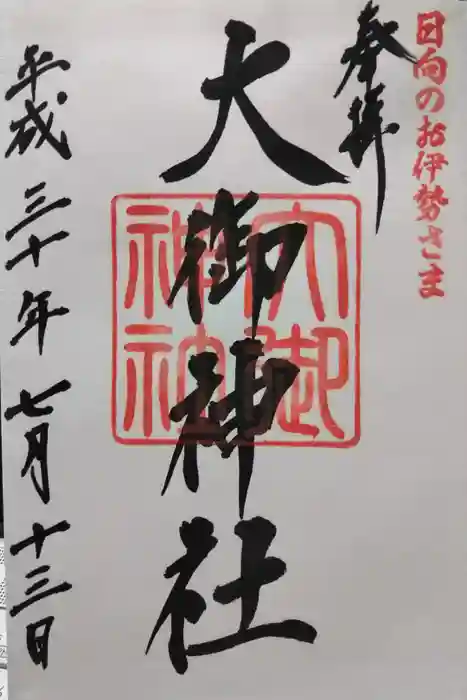 日向のお伊勢さま
奉拝
大御神社
大御神社
平成三十年七月十三日